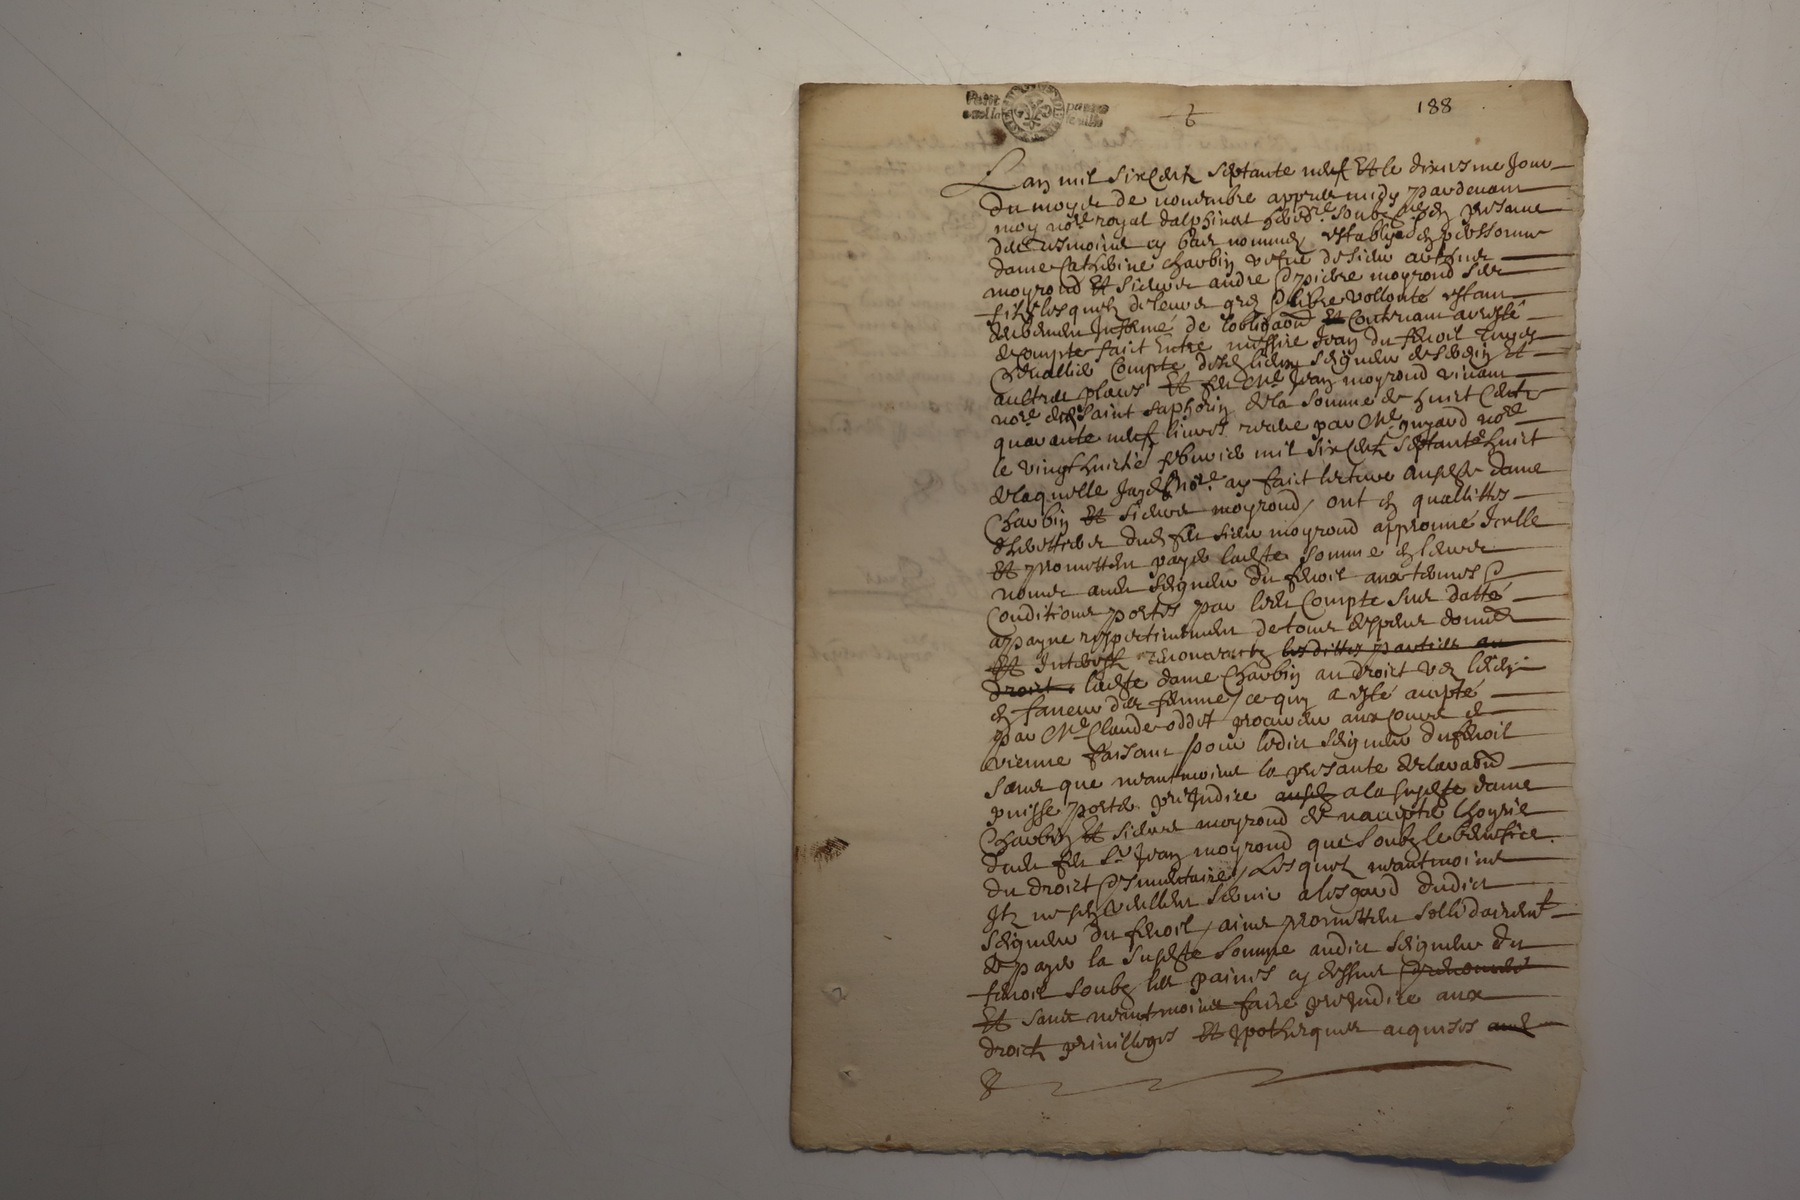 188
Lan mil six centz septante neuf et le dixiesme Jour
du moys de novembre appres midy pardevant
moy no.re royal dalphinal hered.re soubzne et en presance
des tesmoins cy bas nommes establye en personne
dame Catherine Charbin vefve de sieur anthoine
moyroud Et sieurs andre & pierre moyroud ses
filz lesquelz de leurs grez & libre vollonté estant
deubement Informé de lobligaon Et Contenant arresté
de compte faict Entre messire Jean du fenoil
Chevallier Compte seigneur de et
aultres places Et feu Me Jean moyroud vivant
nore de Saint saphorin de la somme de huict Centz
quarante neuf livres receue par Me guyard nore
le vingthuictie febvrier mil six centz septante huict
de laquelle Jay nore ay faict lecture auxdte dame
Charbin Et sieurs moyroud, ont en quallittés
dheritiers dud feu sieur moyroud approuvé Icelle
Et promettent payer ladte somme en leurs
noms aud seigneur du fenoil aux termes &
Conditions portés par led Compte sur datté
a payne respectivement de tous despens dommes
Et Interestz renonceantz lesdittes parties au
droict ladte dame Charbin au droict
en faveur des femmes, ce quy a esté acepté
par Me Claude oddet procureur aux cours de
vienne faisant pour ledict seigneur du fenoil
sans que neantmoins la presante declaraon
puisse porter preJudice a la susdte dame
Charbin Et sieurs moyroud de naccepter lhoyrie
dud feu Sr Jean moyroud que soubz le beneffice
du droict & Inventaire, Lesquelz neantmoins
Ilz ne sen veullent servir a lesgard dudict
seigneur du fenoil, ains promettent sollidairemt
de payer la susdte somme audict seigneur du
fenoil soubz les paines cy dessus
Et sans neantmoins faire preJudice aux
droictz privilleges Et ypotheques acquises aud